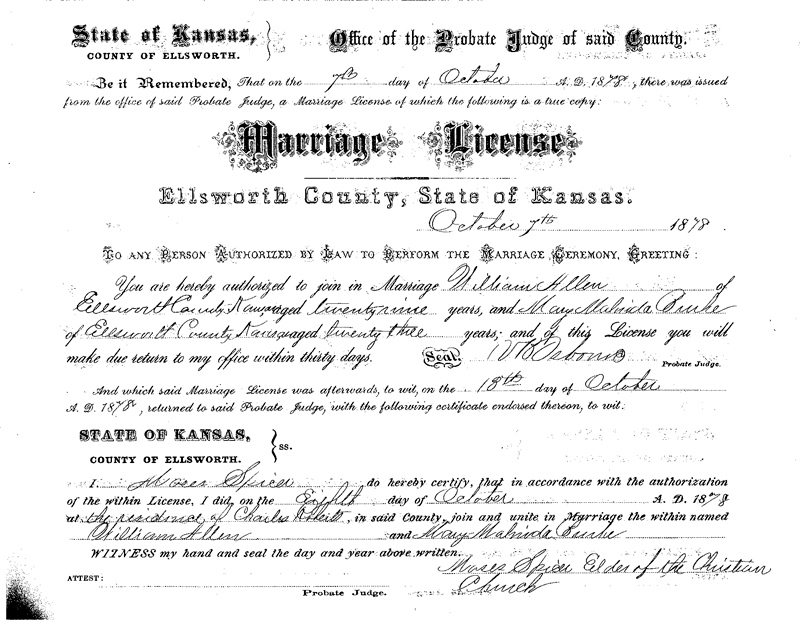 State of Kansas,
COUNTY OF ELLSWORTH.
Office of the Probate Judge of said County.
Be it Remembered, That on the 7th day of October A. D. 1878, there was issued
from the office of said Probate Judge, a Marriage License of which the following is a true copy:
Marriage License
Ellsworth County, State of Kansas.
October 7th 1878.
TO ANY PERSON AUTHORIZED BY LAW TO PERFORM THE MARRIAGE CEREMONY, GREETING:
You are hereby authorized to join in Marriage William Allen of
Ellsworth County Kansas aged twenty nine years, and Mary Malinda Burke
of Ellsworth County Kansas aged twenty three years; and of this License you will
make due return to my office within thirty days. Seal. Osborn
Probate Judge.
And which said Marriage License was afterwards, to wit, on the 18th day of October
A. D. 1878, returned to said Probate Judge, with the following certificate endorsed thereon, to wit:
STATE OF KANSAS,
COUNTY OF ELLSWORTH. ss.
I Moses Spicer do hereby certify, that in accordance with the authorization
of the within License, I did, on the Eighth day of October A. D. 1878
at the residence of Charles, in said County, join and unite in Marriage the within named
William Allen and Mary Malinda Burke
WITNESS my hand and seal the day and year above written.
Moses Spicer Elder of the Christian
Church
ATTEST:
Probate Judge.